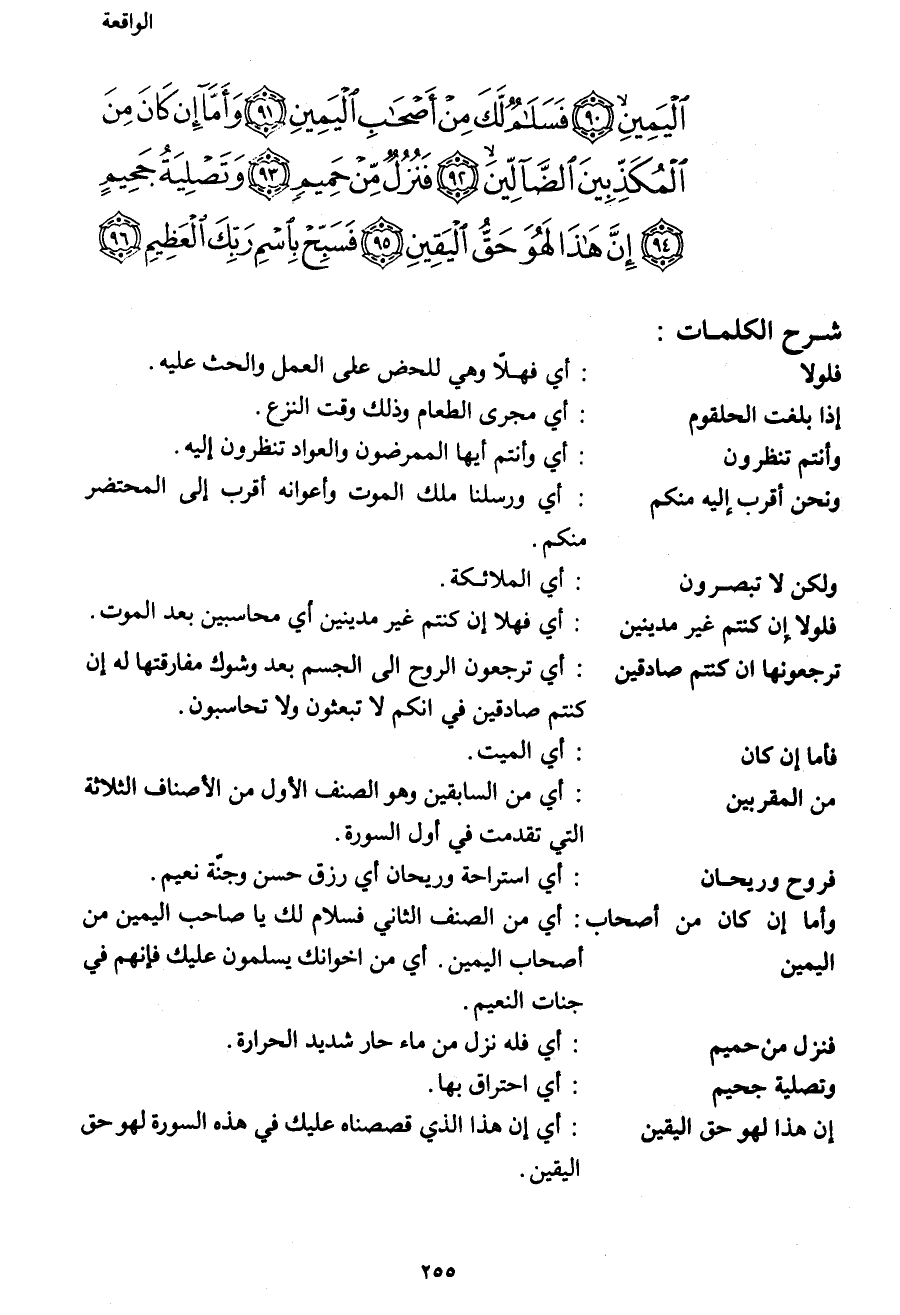 الواقعة
ٱلۡيَمِينِ ٩٠ فَسَلَٰمٞ لَّكَ مِنۡ أَصۡحَٰبِ ٱلۡيَمِينِ ٩١ وَأَمَّآ إِن كَانَ مِنَ
ٱلۡمُكَذِّبِينَ ٱلضَّآلِّينَ ٩٢ فَنُزُلٞ مِّنۡ حَمِيمٖ ٩٣ وَتَصۡلِيَةُ جَحِيمٍ
٩٤ إِنَّ هَٰذَا لَهُوَ حَقُّ ٱلۡيَقِينِ ٩٥ فَسَبِّحۡ بِٱسۡمِ رَبِّكَ ٱلۡعَظِيمِ ٩٦
شرح الكلمات :
فلولا : أي فهلّا وهي للحض على العمل والحث عليه .
إذا بلغت الحلقوم : أي مجرى الطعام وذلك وقت النزع .
وأنتم تنظرون : أي وأنتم أيها الممرضون والعواد تنظرون إليه .
ونحن أقرب إليه منكم : أي ورسلنا ملك الموت وأعوانه أقرب إلى المحتضر
منكم .
ولكن لا تبصرون : أي الملائكة .
فلولا إن كنتم غير مدينين : أي فهلا إن كنتم غير مدينين أي محاسبين بعد الموت .
ترجعونها ان كنتم صادقين : أي ترجعون الروح الى الجسم بعد وشوك مفارقتها له إن
كنتم صادقين في انكم لا تبعثون ولا تحاسبون .
فأما إن كان : أي الميت .
من المقربين : أي من السابقين وهو الصنف الأول من الأصناف الثلاثة
التي تقدمت في أول السورة .
فروح وريحان : أي استراحة وريحان أي رزق حسن وجنّة نعيم .
وأما إن كان من أصحاب : أي من الصنف الثاني فسلام لك يا صاحب اليمين من
اليمين أصحاب اليمين . أي من اخوانك يسلمون عليك فإنهم في
جنات النعيم .
فنزل من حميم : أي فله نزل من ماء حار شديد الحرارة .
وتصلية جحيم : أي احتراق بها .
إن هذا لهو حق اليقين : أي إن هذا الذي قصصناه عليك في هذه السورة لهو حق
اليقين .
٢٥٥